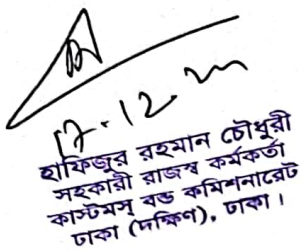 17.12.
হাফিজুর রহমান চৌধুরী
সহকারী রাজস্ব কর্মকর্তা
কাস্টমস্ বন্ড কমিশনারেট
ঢাকা (দক্ষিণ), ঢাকা।